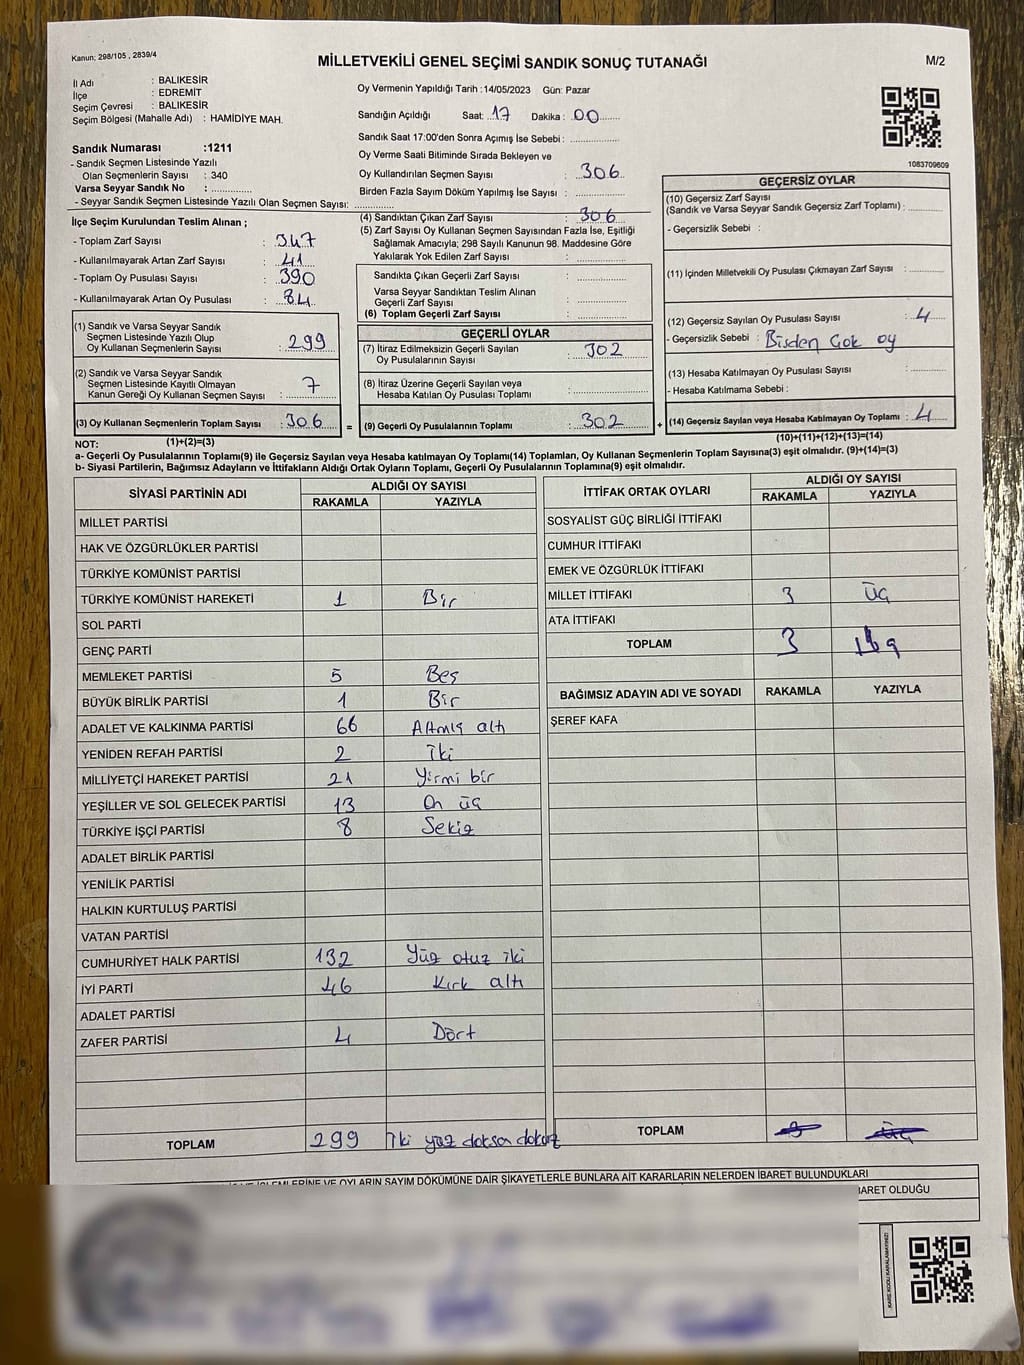 Kanun; 298/105 , 2839/4
MİLLETVEKİLİ GENEL SEÇİMİ SANDIK SONUÇ TUTANAĞI
M/2
İl Adı : BALIKESİR
İlçe : EDREMİT
Seçim Çevresi : BALIKESİR
Seçim Bölgesi (Mahalle Adı) : HAMİDİYE MAH.
Sandık Numarası :1211
- Sandık Seçmen Listesinde Yazılı
Olan Seçmenlerin Sayısı : 340
Varsa Seyyar Sandık No : ..............
- Seyyar Sandık Seçmen Listesinde Yazılı Olan Seçmen Sayısı: ..............
Oy Vermenin Yapıldığı Tarih :14/05/2023 Gün: Pazar
Sandığın Açıldığı Saat: 17 Dakika : 00
Sandık Saat 17:00'den Sonra Açımış İse Sebebi : ..............
Oy Verme Saati Bitiminde Sırada Bekleyen ve
Oy Kullandırılan Seçmen Sayısı : 306
Birden Fazla Sayım Döküm Yapılmış İse Sayısı : ..............
1083709609
İlçe Seçim Kurulundan Teslim Alınan ;
- Toplam Zarf Sayısı : 347
- Kullanılmayarak Artan Zarf Sayısı : 41
- Toplam Oy Pusulası Sayısı : 390
- Kullanılmayarak Artan Oy Pusulası : 84
(1) Sandık ve Varsa Seyyar Sandık
Seçmen Listesinde Yazılı Olup
Oy Kullanan Seçmenlerin Sayısı : 299
(2) Sandık ve Varsa Seyyar Sandık
Seçmen Listesinde Kayıtlı Olmayan
Kanun Gereği Oy Kullanan Seçmen Sayısı : 7
(3) Oy Kullanan Seçmenlerin Toplam Sayısı : 306 =
(4) Sandıktan Çıkan Zarf Sayısı : 306
(5) Zarf Sayısı Oy Kullanan Seçmen Sayısından Fazla İse, Eşitliği
Sağlamak Amacıyla; 298 Sayılı Kanunun 98. Maddesine Göre
Yakılarak Yok Edilen Zarf Sayısı : ..............
Sandıkta Çıkan Geçerli Zarf Sayısı : ..............
Varsa Seyyar Sandıktan Teslim Alınan
Geçerli Zarf Sayısı : ..............
(6) Toplam Geçerli Zarf Sayısı : ..............
GEÇERLİ OYLAR
(7) İtiraz Edilmeksizin Geçerli Sayılan
Oy Pusulalarının Sayısı : 302
(8) İtiraz Üzerine Geçerli Sayılan veya
Hesaba Katılan Oy Pusulası Toplamı : ..............
(9) Geçerli Oy Pusulalarının Toplamı : 302 +
GEÇERSİZ OYLAR
(10) Geçersiz Zarf Sayısı
(Sandık ve Varsa Seyyar Sandık Geçersiz Zarf Toplamı) : ..............
- Geçersizlik Sebebi :
(11) İçinden Milletvekili Oy Pusulası Çıkmayan Zarf Sayısı : ..............
(12) Geçersiz Sayılan Oy Pusulası Sayısı : 4
- Geçersizlik Sebebi : Bisden Çok oy
(13) Hesaba Katılmayan Oy Pusulası Sayısı : ..............
- Hesaba Katılmama Sebebi :
(14) Geçersiz Sayılan veya Hesaba Katılmayan Oy Toplamı : 4
NOT: (1)+(2)=(3)
(10)+(11)+(12)+(13)=(14)
a- Geçerli Oy Pusulasının Toplamı(9) ile Geçersiz Sayılan veya Hesaba katılmayan Oy Toplamı(14) Toplamları, Oy Kullanan Seçmenlerin Toplam Sayısına(3) eşit olmalıdır. (9)+(14)=(3)
b- Siyasi Partilerin, Bağımsız Adayların ve İttifakların Aldığı Ortak Oyların Toplamı, Geçerli Oy Pusulalarının Toplamına(9) eşit olmalıdır.
SİYASİ PARTİNİN ADI ALDIĞI OY SAYISI
RAKAMLA YAZIYLA
MİLLET PARTİSİ
HAK VE ÖZGÜRLÜKLER PARTİSİ
TÜRKİYE KOMÜNİST PARTİSİ
TÜRKİYE KOMÜNİST HAREKETİ 1 Bir
SOL PARTİ
GENÇ PARTİ
MEMLEKET PARTİSİ 5 Beş
BÜYÜK BİRLİK PARTİSİ 1 Bir
ADALET VE KALKINMA PARTİSİ 66 Altmış altı
YENİDEN REFAH PARTİSİ 2 İki
MİLLİYETÇİ HAREKET PARTİSİ 21 Yirmi bir
YEŞİLLER VE SOL GELECEK PARTİSİ 13 On üç
TÜRKİYE İŞÇİ PARTİSİ 8 Sekiz
ADALET BİRLİK PARTİSİ
YENİLİK PARTİSİ
HALKIN KURTULUŞ PARTİSİ
VATAN PARTİSİ
CUMHURİYET HALK PARTİSİ 132 Yüz otuz iki
İYİ PARTİ 46 Kırk altı
ADALET PARTİSİ
ZAFER PARTİSİ 4 Dört
TOPLAM 299 İki yüz doksan dokuz
İTTİFAK ORTAK OYLARI ALDIĞI OY SAYISI
RAKAMLA YAZIYLA
SOSYALİST GÜÇ BİRLİĞİ İTTİFAKI
CUMHUR İTTİFAKI
EMEK VE ÖZGÜRLÜK İTTİFAKI
MİLLET İTTİFAKI 3 üç
ATA İTTİFAKI
TOPLAM 3 üç
BAĞIMSIZ ADAYIN ADI VE SOYADI RAKAMLA YAZIYLA
ŞEREF KAFA
TOPLAM 3 üç
İŞLEMLERİNE VE OYLARIN SAYIM DÖKÜMÜNE DAİR ŞİKAYETLERLE BUNLARA AİT KARARLARIN NELERDEN İBARET BULUNDUKLARI
İBARET OLDUĞU
KARE KODU KARALAMAYINIZ!